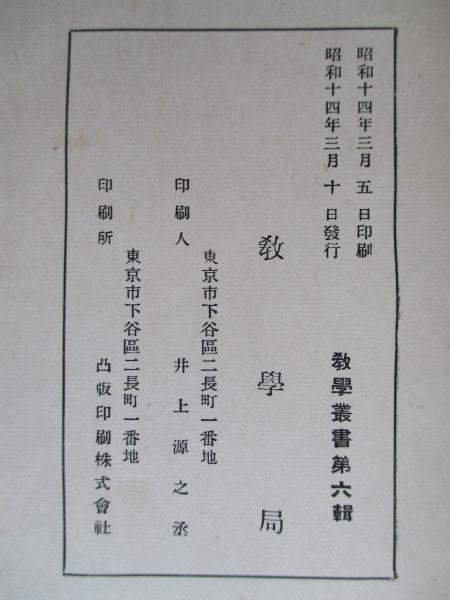 昭和十四年三月五日印刷
昭和十四年三月十日發行
敎學叢書第六輯
敎學局
東京市下谷區二長町一番地
印刷人 井上源之丞
東京市下谷區二長町一番地
印刷所 凸版印刷株式會社